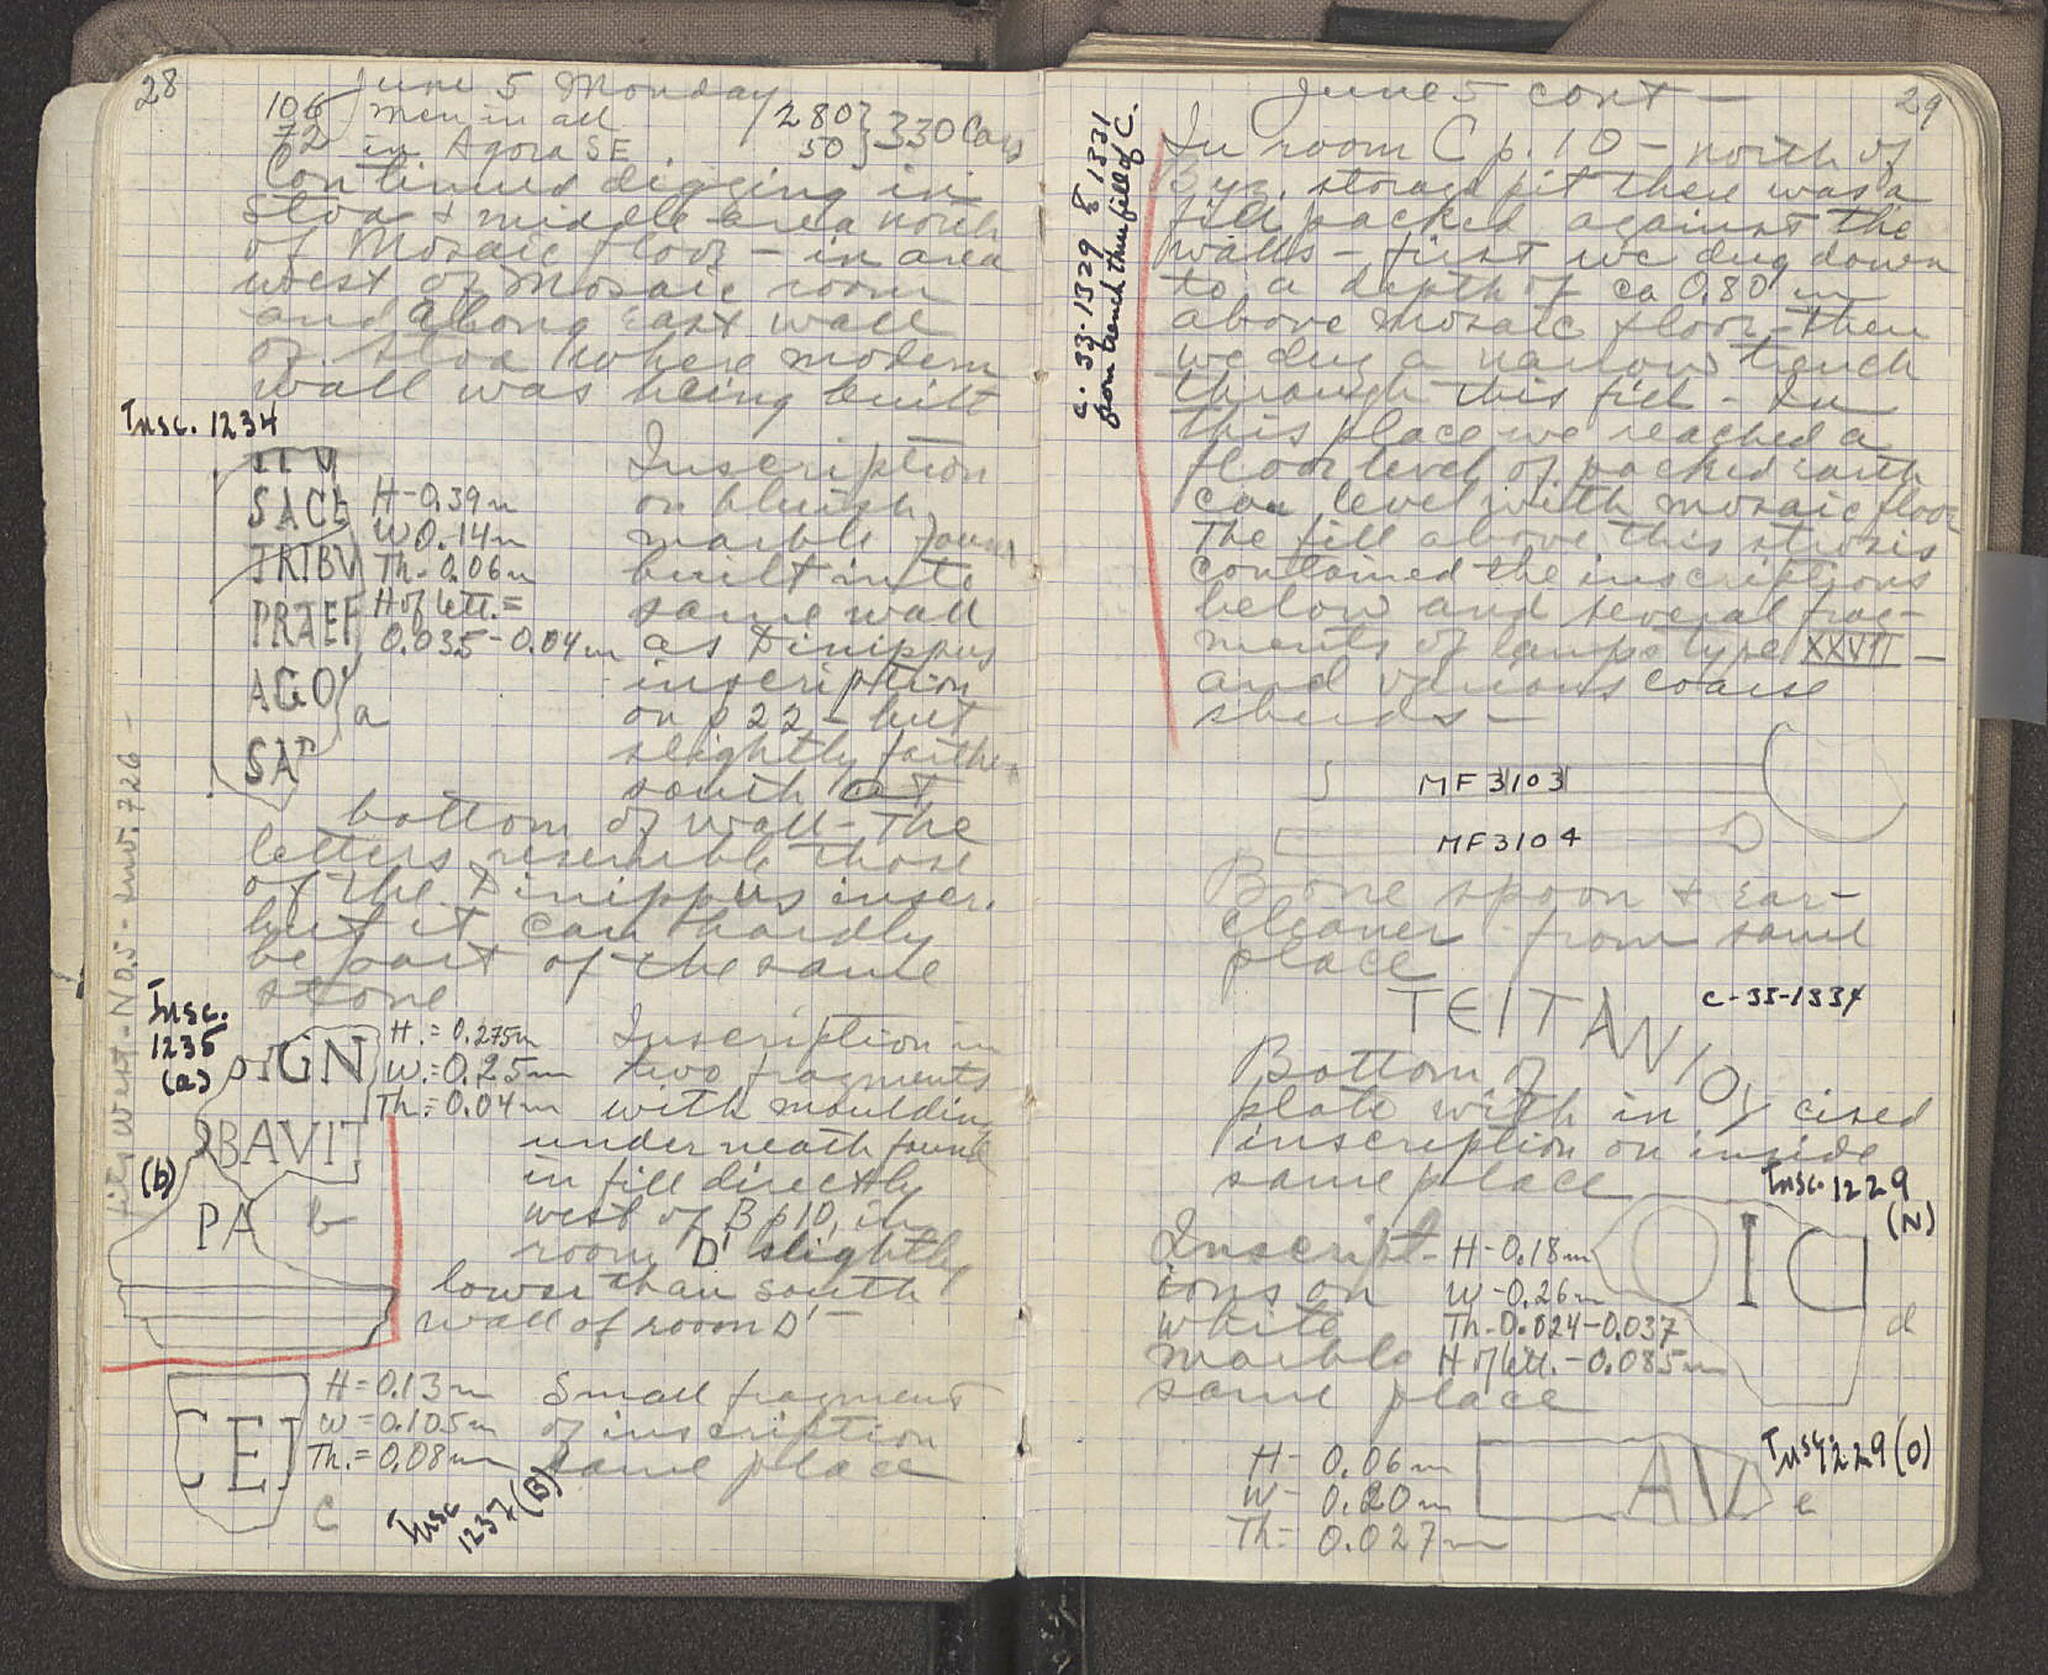 28
June 5 Monday
106 men in all
72 in Agora SE.
280
50
} 330 Cars
Continued digging in
stoa & middle area north
of Mosaic floor - in area
west of Mosaic room
and along east wall
of stoa where modern
wall was being built
Insc. 1234
SACE
TRIBV
PRAEF
AGO
SAP
a
H - 0.39m
W 0.14m
Th. 0.06m
H of lett. =
0.035 - 0.04m
Inscription
on bluish
marble found
built into
same wall
as Dinippus
inscription
on p 22 - but
slightly farther
south at
bottom of wall - The
letters resemble those
of the Dinippus inscr.
but it can hardly
be part of the same
stone
fits west - No. 5 - inv. 726 -
Insc.
1235
(a)
IGN
RBAVIT
(b)
PA b
H. = 0.275m
W. = 0.25m
Th. = 0.04m
Inscription in
two fragments
with moulding
underneath found
in fill directly
west of B p 10, in
room D' slightly
lower than south
wall of room D' -
CEI
c
H = 0.13m
W = 0.105m
Th. = 0.08m
Small fragment
of inscription
same place
Insc
1237 (B)
29
June 5 cont -
C. 33-1329 8 1331
from trench thru fill of C.
In room C p. 10 - north of
Byz. storage pit there was a
fill packed against the
walls - first we dug down
to a depth of ca 0.80 m
above mosaic floor - then
we dug a narrow trench
through this fill - In
this place we reached a
floor level of packed earth
ca level with mosaic floor
The fill above this strosis
contained the inscriptions
below and several frag-
ments of lamps type XXVII -
and various coarse
sherds -
MF 3103
MF 3104
Bone spoon & ear-
cleaner from same
place
C-33-1334
TEITANIO
Bottom of
plate with incised
inscription on inside
same place
Insc. 1229
(N)
Inscript-
ions on
white
marble
same place
H - 0.18m
W - 0.26m
Th. 0.024-0.037
H of lett. - 0.085m
OIC
d
H - 0.06m
W - 0.20m
Th = 0.027m
AV
e
Insc. 1229 (O)